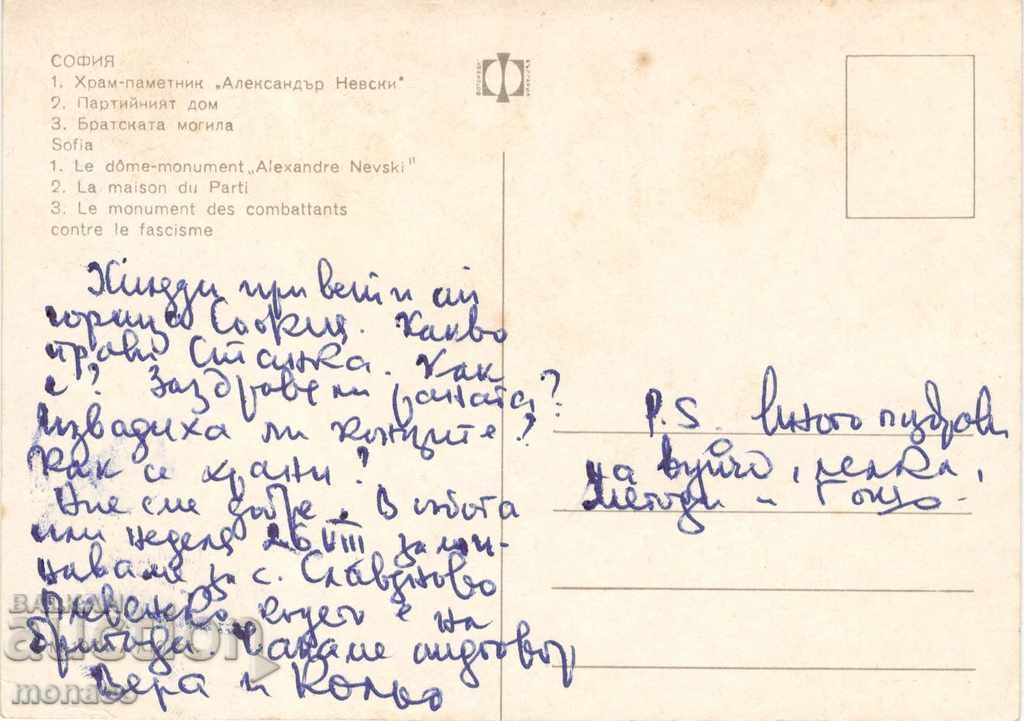 СОФИЯ
1. Храм-паметник „Александър Невски“
2. Партийният дом
3. Братската могила
Sofia
1. Le dôme-monument „Alexandre Nevski"
2. La maison du Parti
3. Le monument des combattants
contre le fascisme
привети
Какво
прави Станка. Как
е? Заздравя ли раната?
Извадиха ли конците?
Как се храни?
Ние сме добре. В събота
или неделя 26 VIII зами-
наваме за с.
Плевенско където е на
бригада. Чакаме отговор
Вера и Кольо
P.S. Много поздрави
на вуйчо, лелка,
Методи и
BALKAN
auction
monaes